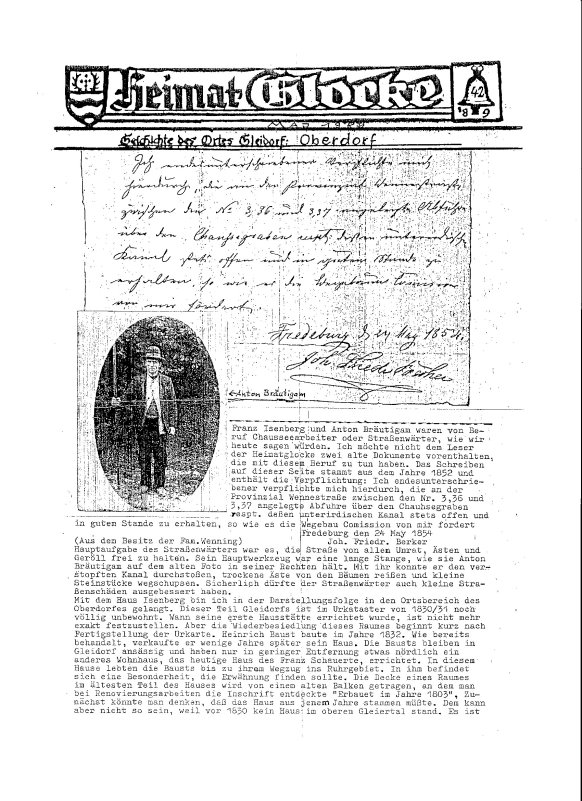 Heimat Glocke
42
89
MAI 1989
Geschichte des Ortes Gleidorf: Oberdorf
Ich endesunterschriebener verpflichte mich
hierdurch, die an der Provinzial Wennestraße
zwischen den Nr. 3,36 und 3,37 angelegte Abfuhre
über den Chausseegraben respt. deßen unterirdischen
Kanal stets offen und in gutem Stande zu
erhalten, so wie es die Wegebau Comission
von mir fordert.
Fredeburg d 24 May 1854
Joh. Friedr.
←Anton Bräutigam
Franz Isenberg und Anton Bräutigam waren von Be-
ruf Chausseearbeiter oder Straßenwärter, wie wir
heute sagen würden. Ich möchte nicht dem Leser
der Heimatglocke zwei alte Dokumente vorenthalten,
die mit diesem Beruf zu tun haben. Das Schreiben
auf dieser Seite stammt aus dem Jahre 1852 und
enthält die Verpflichtung: Ich endesunterschrie-
bener verpflichte mich hierdurch, die an der
Provinzial Wennestraße zwischen den Nr. 3,36 und
3,37 angelegte Abfuhre über den Chauhsegraben
respt. deßen unterirdischen Kanal stets offen und
in guten Stande zu erhalten, so wie es die Wagebau Comission von mir fordert
Fredeburg den 24 May 1854
(Aus den Besitz der Fam.Wenning) Joh. Friedr. Berker
Hauptaufgabe des Straßenwärters war es, die Straße von allem Unrat, Ästen und
Geröll frei zu halten. Sein Hauptwerkzeug war eine lange Stange, wie sie Anton
Bräutigam auf dem alten Foto in seiner Rechten hält. Mit ihr konnte er den ver-
stopften Kanal durchstoßen, trockene Äste von den Bäumen reißen und kleine
Steinstücke wegschupsen. Sicherlich dürfte der Straßenwärter auch kleine Stra-
ßenschäden ausgebessert haben.
Mit dem Haus Isenberg bin ich in der Darstellungsfolge in den Ortsbereich des
Oberdorfes gelangt. Dieser Teil Gleidorfs ist im Urkataster von 1830/31 noch
völlig unbewohnt. Wann seine erste Hausstätte errichtet wurde, ist nicht mehr
exakt festzustellen. Aber die Wiederbesiedlung dieses Raumes beginnt kurz nach
Fertigstellung der Urkarte. Heinrich Baust baute im Jahre 1832. Wie bereits
behandelt, verkaufte er wenige Jahre später sein Haus. Die Bausts bleiben in
Gleidorf ansässig und haben nur in geringer Entfernung etwas nördlich ein
anderes Wohnhaus, das heutige Haus des Franz Schauerte, errichtet. In diesem
Hause lebten die Bausts bis zu ihrem Wegzug ins Ruhrgebiet. In ihm befindet
sich eine Besonderheit, die Erwähnung finden sollte. Die Decke eines Raumes
im ältesten Teil des Hauses wird von einem alten Balken getragen, an dem man
bei Renovierungsarbeiten die Inschrift entdeckte "Erbauet im Jahre 1803", Zu-
nächst könnte man denken, daß das Haus aus jenem Jahre stammen müßte. Dem kann
aber nicht so sein, weil vor 1830 kein Haus im oberem Gleiertal stand. Es ist